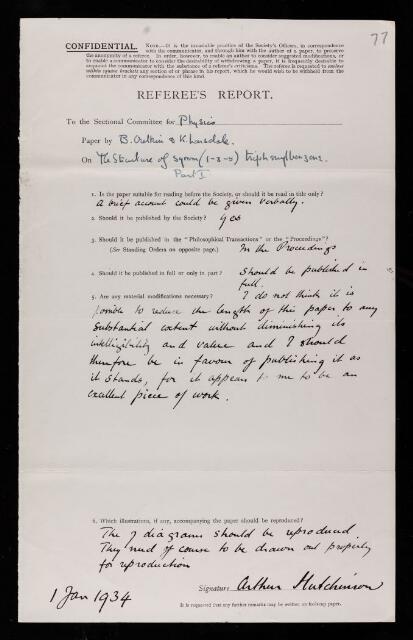 77
CONFIDENTIAL. NOTE.—It is the invariable practice of the Society's Officers, in correspondence
with the communicator, and through him with the author of a paper, to preserve
the anonymity of a referee. In order, however, to enable an author to consider suggested modifications, or
to enable a communicator to consider the desirability of withdrawing a paper, it is frequently desirable to
acquaint the communicator with the substance of a referee's criticisms. The referee is requested to enclose
within square brackets any section of or phrase in his report, which he would wish to be withheld from the
communicator in any correspondence of this kind.
REFEREE'S REPORT.
To the Sectional Committee for Physics
Paper by B. Orelkin & K. Lonsdale.
On The Structure of symm (1-3-5) triphenylbenzene.
Part I
1. Is the paper suitable for reading before the Society, or should it be read in title only?
A brief account could be given verbally.
2. Should it be published by the Society? yes
3. Should it be published in the "Philosophical Transactions" or the "Proceedings"?
(See Standing Orders on opposite page.) In the Proceedings
4. Should it be published in full or only in part? Should be published in
full.
5. Are any material modifications necessary? I do not think it is
possible to reduce the length of this paper to any
substantial extent without diminishing its
intelligibility and value and I should
therefore be in favour of publishing it as
it stands, for it appears to me to be an
excellent piece of work.
6. Which illustrations, if any, accompanying the paper should be reproduced?
The 7 diagrams should be reproduced.
They need of course to be drawn out properly
for reproduction
Signature Arthur Hutchinson
1 Jan 1934
It is requested that any further remarks may be written on following pages.